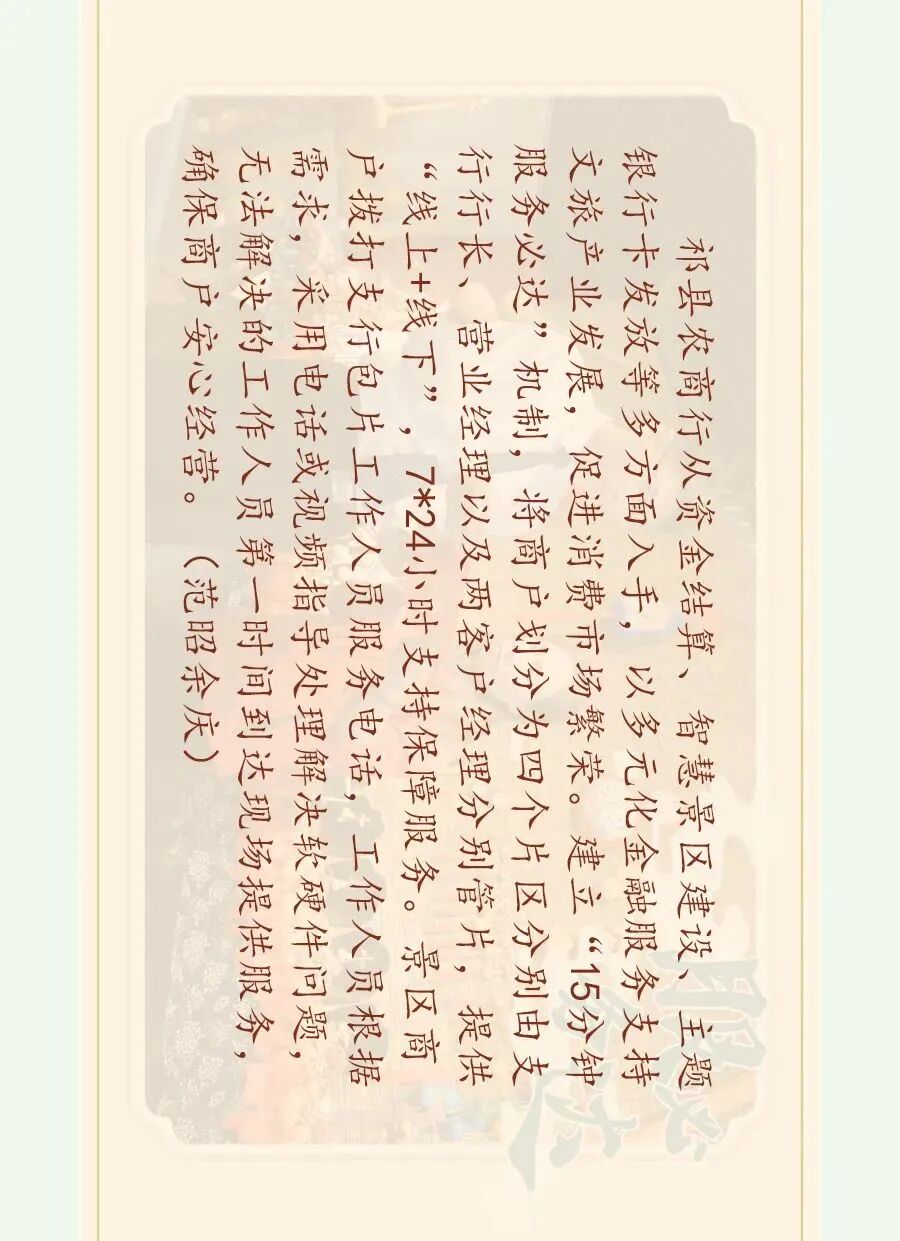 祁县农商行从资金结算、智慧景区建设、主题
银行卡发放等多方面入手，以多元化金融服务支持
文旅产业发展，促进消费市场繁荣。建立“15分钟
服务必达”机制，将商户划分为四个片区分别由支
行行长、营业经理以及两客户经理分别管片，提供
“线上+线下”，7*24小时支持保障服务。景区商
户拨打支行包片工作人员服务电话，工作人员根据
需求，采用电话或视频指导处理解决软硬件问题，
无法解决的工作人员第一时间到达现场提供服务，
确保商户安心经营。（范昭余庆）